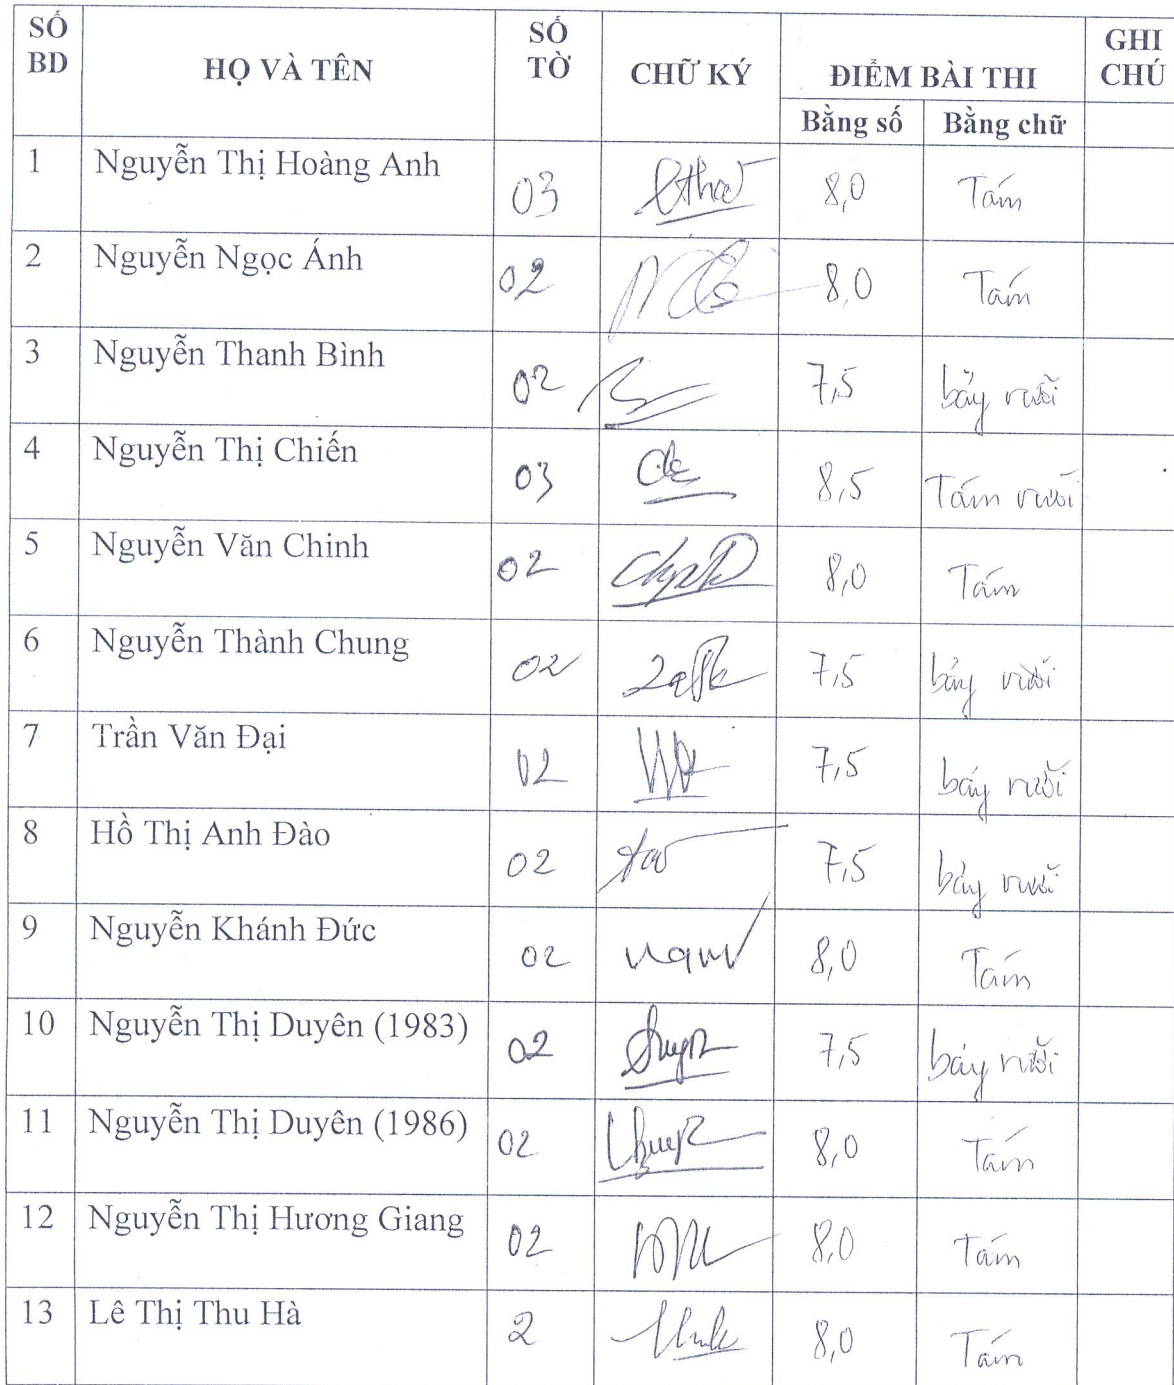 SỐ BD HỌ VÀ TÊN SỐ TỜ CHỮ KÝ ĐIỂM BÀI THI GHI CHÚ
Bằng số Bằng chữ
1 Nguyễn Thị Hoàng Anh 03 8,0 Tám
2 Nguyễn Ngọc Ánh 02 8,0 Tám
3 Nguyễn Thanh Bình 02 7,5 bảy rưỡi
4 Nguyễn Thị Chiến 03 8,5 Tám rưỡi
5 Nguyễn Văn Chinh 02 8,0 Tám
6 Nguyễn Thành Chung 02 7,5 bảy rưỡi
7 Trần Văn Đại 02 7,5 bảy rưỡi
8 Hồ Thị Anh Đào 02 7,5 bảy rưỡi
9 Nguyễn Khánh Đức 02 8,0 Tám
10 Nguyễn Thị Duyên (1983) 02 7,5 bảy rưỡi
11 Nguyễn Thị Duyên (1986) 02 8,0 Tám
12 Nguyễn Thị Hương Giang 02 8,0 Tám
13 Lê Thị Thu Hà 2 8,0 Tám